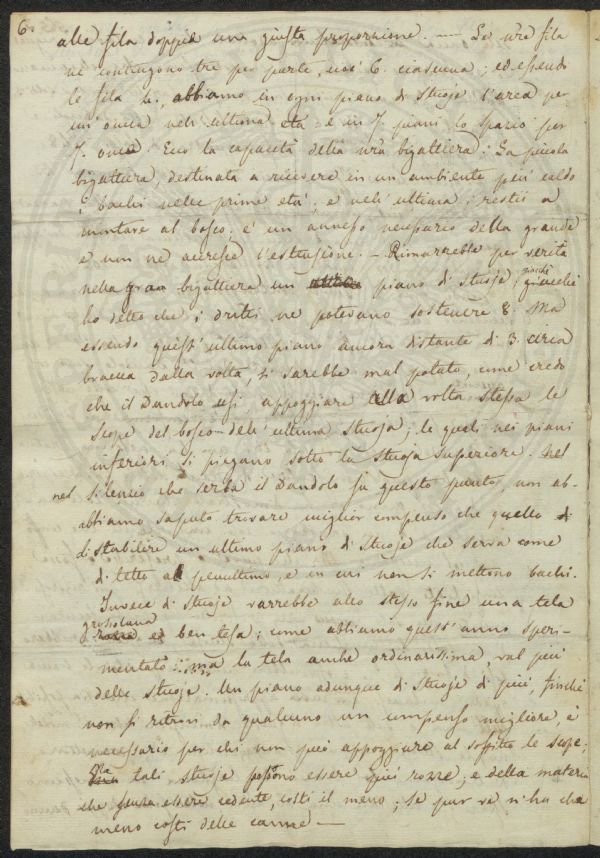 6.
alle fila doppie una giusta proporzione. — Le nre fila
ne contengono tre per parte, così 6. ciascuna; ed essendo
le fila 4., abbiamo in ogni piano di stuoje l'area per
un' oncia nell' ultima età: e in 7 piani lo spazio per
7. oncie. Ecco la capacità della nra bigattiera. La piccola
bigattiera, destinata a ricevere in un ambiente più caldo
i bachi nelle prime età; e nell' ultima i restii a
montare al bosco; è un annesso necessario della grande
e non ne accresce l'estensione. — Rimarrebbe per verità
nella gran bigattiera un piano di stuoje, giacchè
ho detto che i dritti ne potevano sostenere 8. Ma
essendo quest' ultimo piano ancora distante di 3. circa
braccia dalla volta, si sarebbe mal potuto, come credo
che il Dandolo usi, appoggiare alla volta stessa le
scope del bosco dell' ultima stuoja; le quali nei piani
inferiori si piegano sotto la stuoja superiore. Nel
nel silenzio che serba il Dandolo su questo punto, non ab-
abbiamo saputo trovare miglior compenso che quello
di stabilire un ultimo piano di stuoje che serva come
di tetto al penultimo, e in cui non si mettono bachi.
Invece di stuoje varrebbe allo stesso fine una tela
grossolana
ed ben tesa; come abbiamo quest' anno speri-
mentato: ma la tela anche ordinarissima, val più
delle stuoje. Un piano adunque di stuoje di più, finchè
non si ritrovi da qualcuno un compenso migliore, è
necessario per chi non può appoggiare al soffitto le scope;
Ma tali stuoje possono essere più rozze; e della materia
che senza essere cedente, costi il meno; se pur ve n'ha che
meno costi delle canne —